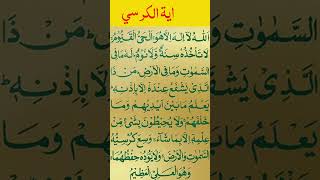 اية الكرسي
اَللّٰهُ لَآ اِلٰهَ اِلَّا هُوَ اَلْحَيُّ الْقَيُّوْمُ
لَا تَأْخُذُهٗ سِنَةٌ وَّلَا نَوْمٌ لَهٗ مَا فِي
السَّمٰوٰتِ وَمَا فِي الْاَرْضِ مَنْ ذَا
الَّذِيْ يَشْفَعُ عِنْدَهٗٓ اِلَّا بِاِذْنِهٖ
يَعْلَمُ مَا بَيْنَ اَيْدِيْهِمْ وَمَا
خَلْفَهُمْ وَلَا يُحِيْطُوْنَ بِشَيْءٍ مِّنْ
عِلْمِهٖٓ اِلَّا بِمَا شَآءَ وَسِعَ كُرْسِيُّهُ
السَّمٰوٰتِ وَالْاَرْضَ وَلَا يَئُوْدُهٗ حِفْظُهُمَا
وَهُوَ الْعَلِيُّ الْعَظِيْمُ